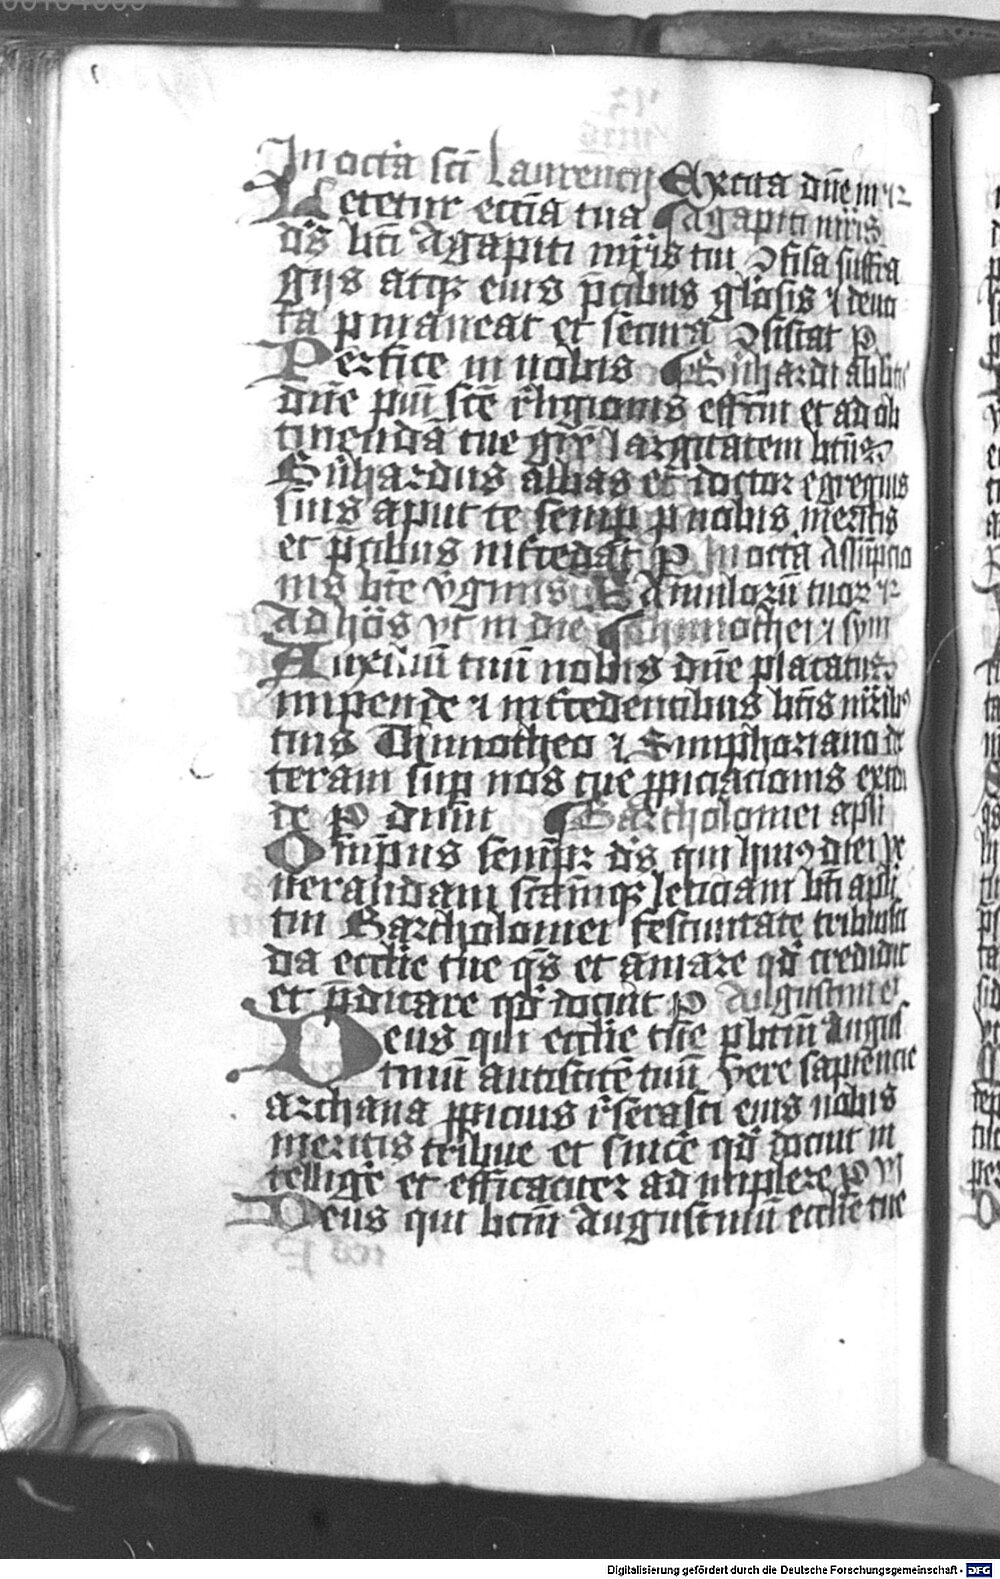 In octa sci Laurencij Excita dne in
Letetur eccia tua Agapiti mris
ds bti Agapiti mris tui ꝯfisa suffra
gijs atqꝫ eius pcibus gliosis ⁊ deuo
ta pmaneat et secura ꝯsistat P
Perfice in nobis Bnhardi abbtis
dne piu sce religionis effcm et ad ob
tinenda tue gre largitatem btus
Bnhardus abbas et doctor egregius
suis aput te semp p nobis meritis
et pcibus intcedat P In octa Assupcio
nis bte vginis Famuloru tuoꝝ
Ad hos vt in die Thimothei ⁊ sym
Auxiliu tuu nobis dne placatus
impende ⁊ intcedentibus btis mribꝰ
tuis Thimotheo ⁊ Simphoriano dex
teram sup nos tue ppiciacionis exten
de P dnm Bartholomei apli
Omps sempꝫ ds qui huiꝰ diei ve
nerandam scamqꝫ leticiam bti apli
tui Bartholomei festiuitate tribuisti
da ecclie tue qs et amare qd credidit
et pdicare qd docuit P Augustini
Deus qui ecclie tue btm Augus
tinu antistite tuu vere sapiencie
archana ppicius reserasti eius nobis
meritis tribue et since qd docuit in
tellige et efficaciter ad implere P vl
Deus qui btm Augustinu ecclie tue
Digitalisierung gefördert durch die Deutsche Forschungsgemeinschaft - DFG